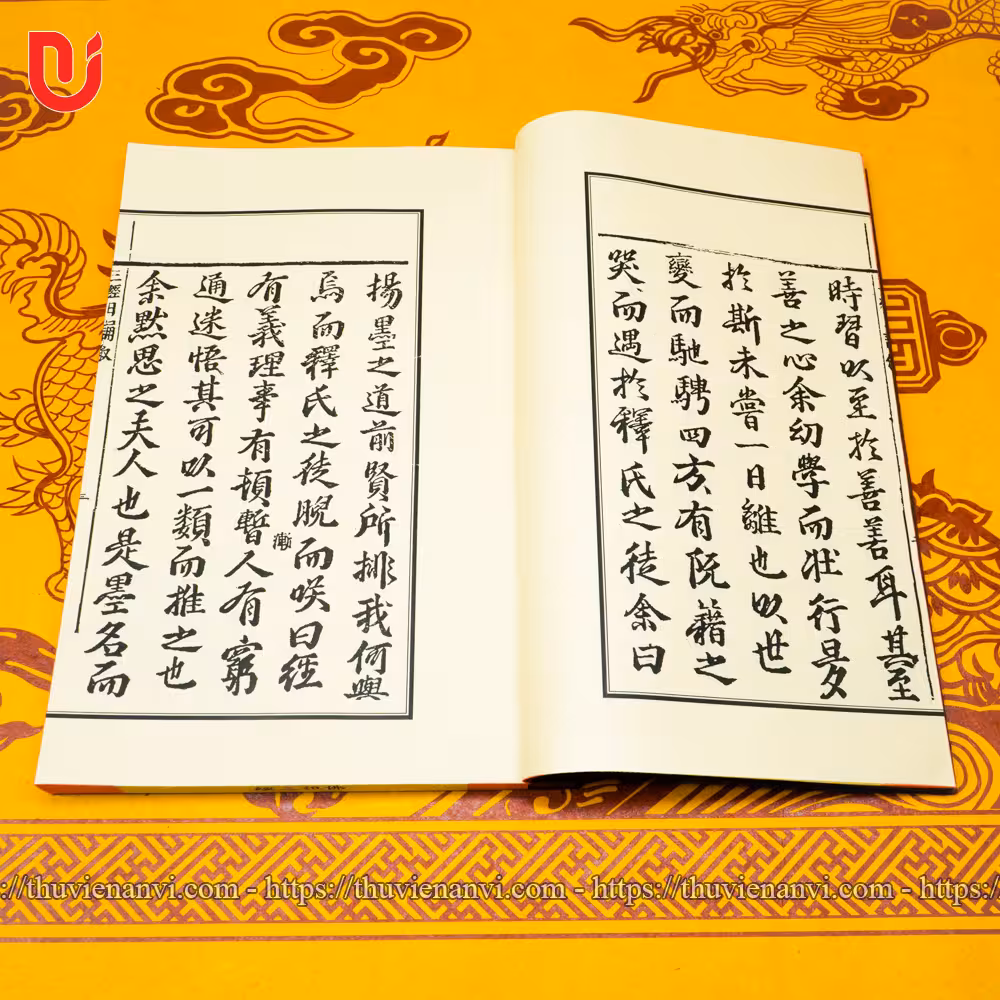 時習以至於善善耳其至
善之心余幼學而壯行旦夕
於斯未嘗一日離也以世
變而馳騁四方有阮籍之
哭而遇於釋氏之徒余曰
揚墨之道前賢所排我何與
焉而釋氏之徒睨而笑曰經
有義理事有頓暫漸人有窮
通迷悟其可以一類而推之也
余默思之夫人也是墨名而
三
://thuvienanvi.com - https://thuvienanvi.com - https://thuvienanvi.com - https://